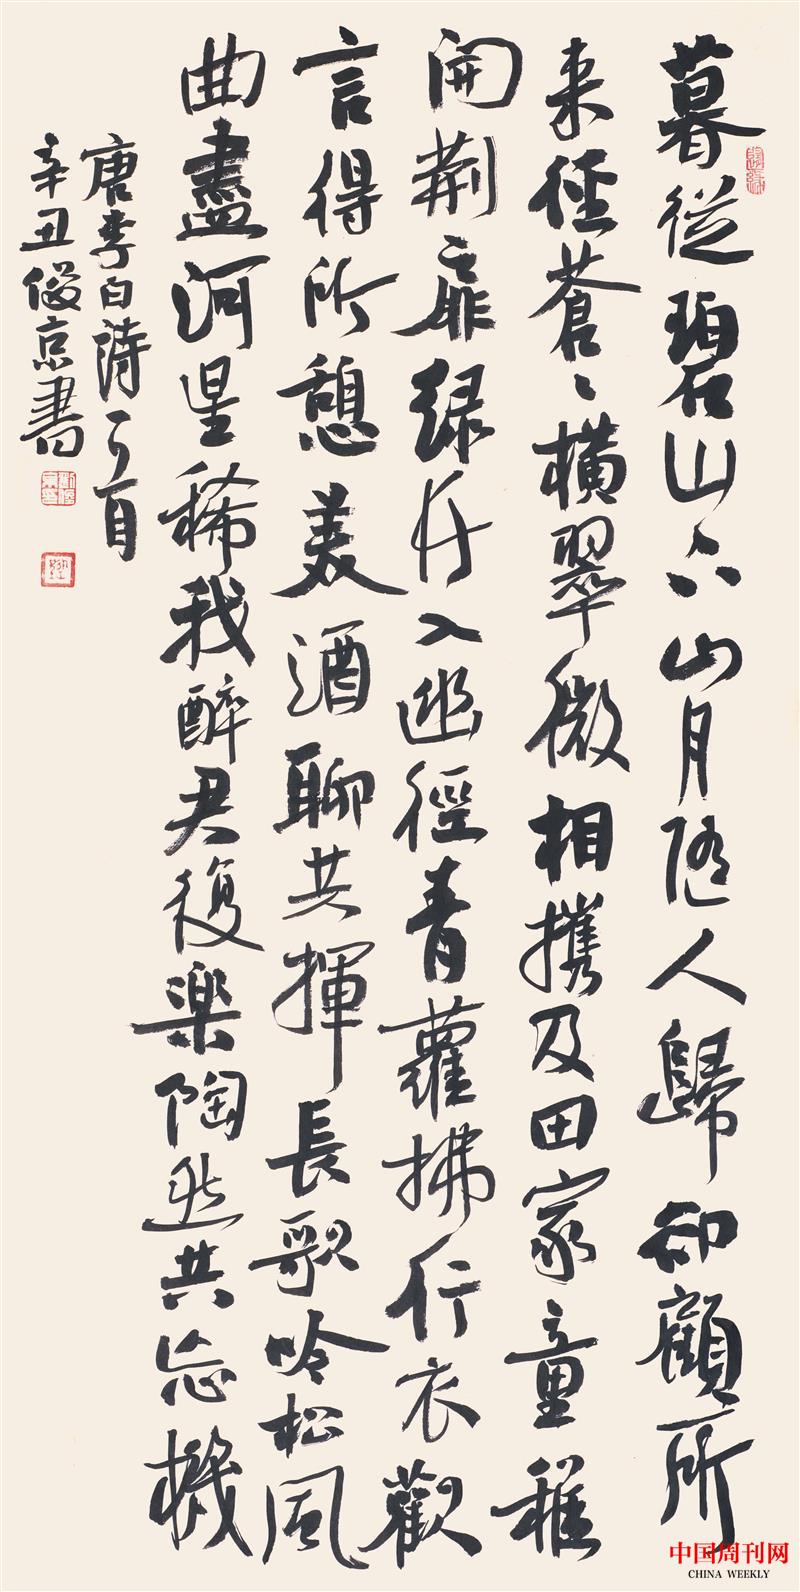 暮從碧山下山月隨人歸卻顧所
來徑蒼々橫翠微相攜及田家童稚
開荊扉綠竹入幽徑青蘿拂行衣歡
言得所憩美酒聊共揮長歌吟松風
曲盡河星稀我醉君復樂陶然共忘機
唐李白詩一首
辛丑俊京書
中国周刊网
CHINA WEEKLY